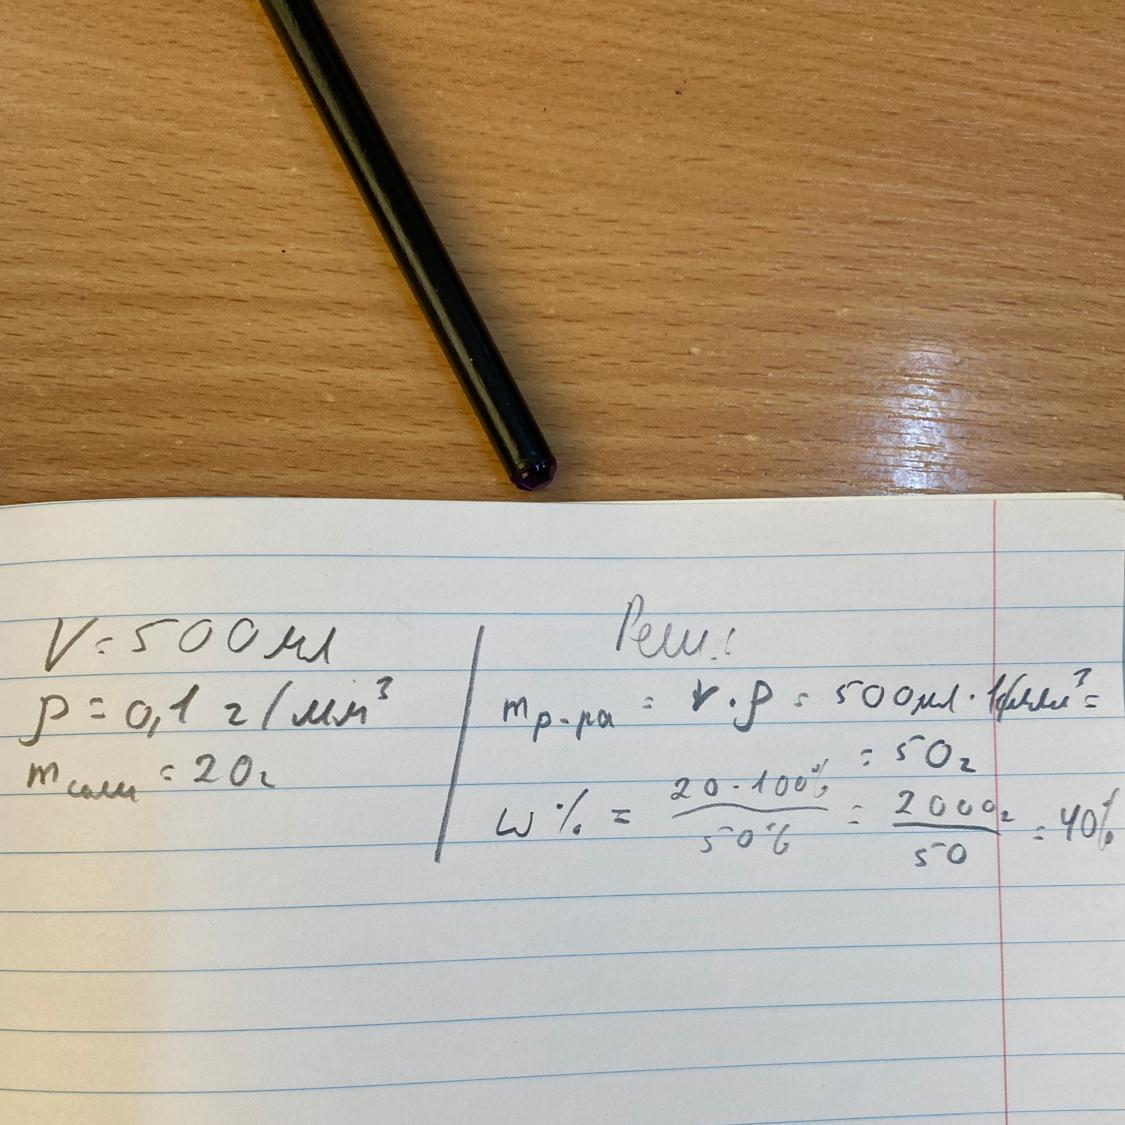 V = 500 мл
ρ = 0,1 г/мм³
m соли = 20г
Реш.:
m р-ра = V · ρ = 500 мл · /мм³ =
= 50г
ω% = 20 · 100% / 50% = 2000г / 50 = 40%